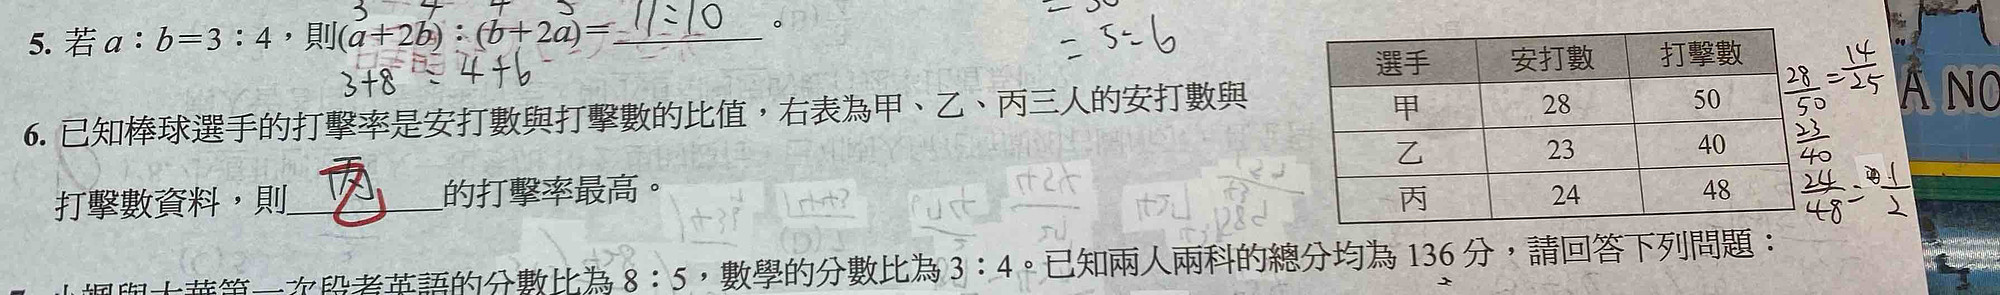 = 5:6
5. 若 a：b=3：4，則(a+2b)：(b+2a)= 11:10 。
3+8 : 4+6
6. 已知棒球選手的打擊率是安打數與打擊數的比值，右表為甲、乙、丙三人的安打數與
打擊數資料，則 丙 乙 的打擊率最高。
選手 安打數 打擊數
甲 28 50 28/50 = 14/25
乙 23 40 23/40
丙 24 48 24/48 = 1/2
A NO
第一次段考英語的分數比為 8：5，數學的分數比為 3：4。已知兩人兩科的總分均為 136 分，請回答下列問題：